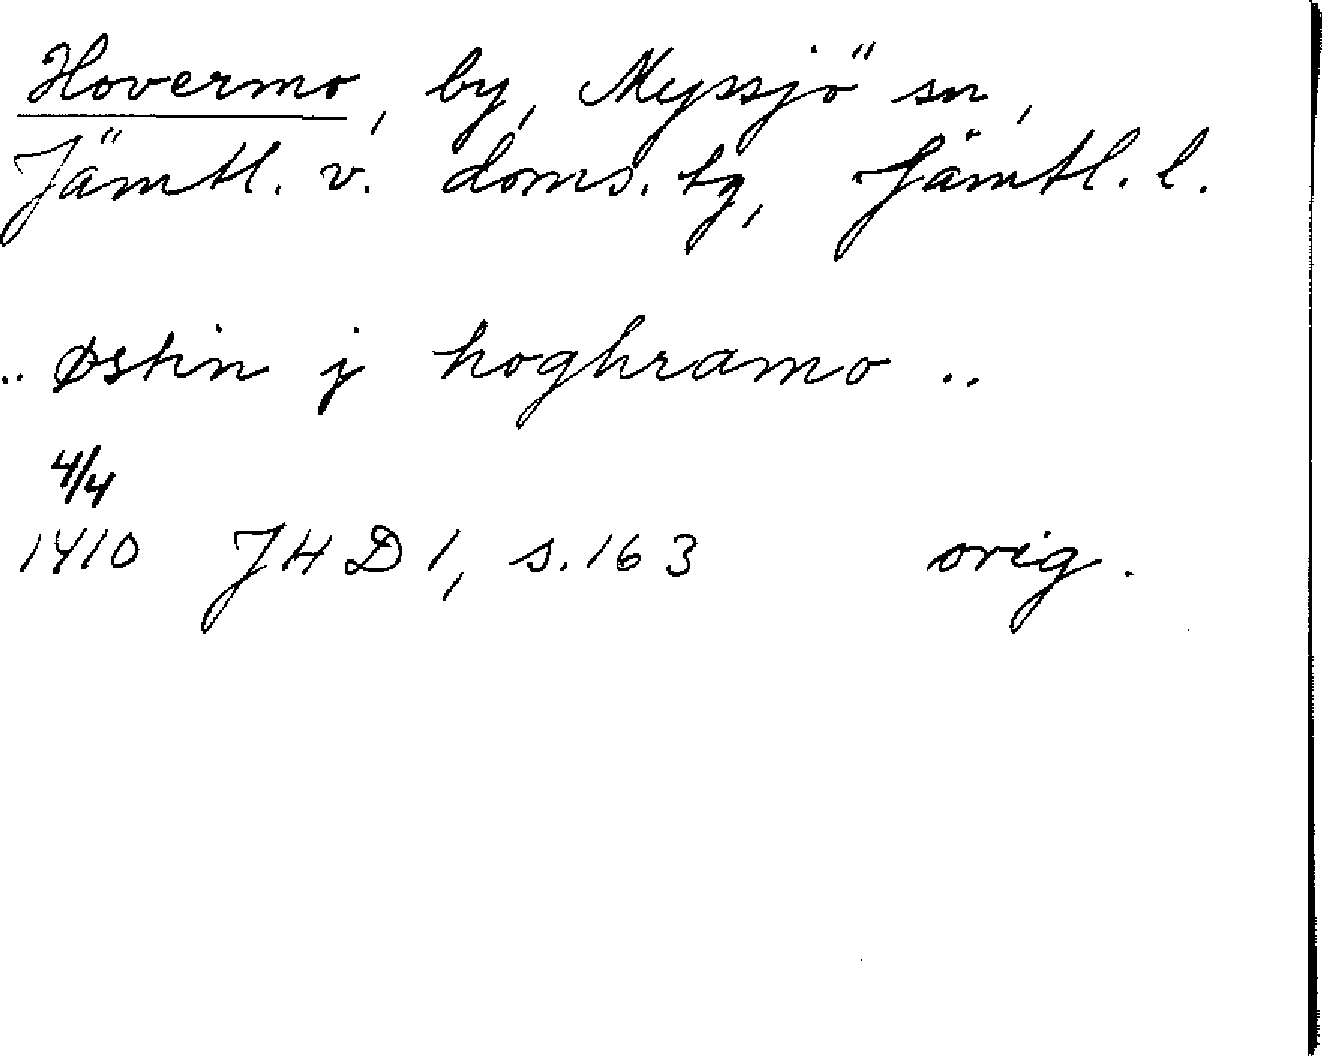 Hovermo, by, Myssjö sn,
Jämtl. v. doms. tg, Jämtl. l.
.. østin j hoghramo ..
4/4
1410 JHD 1, s. 163 orig.